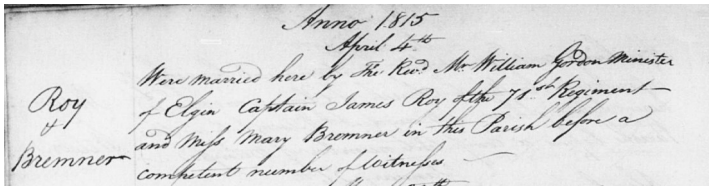 Anno 1815
April 4th
Roy
&
Bremner
Were married here by The Revd Mr William Gordon Minister
of Elgin Captain James Roy of the 71st Regiment
and Miss Mary Bremner in this Parish before a
competent number of Witnesses